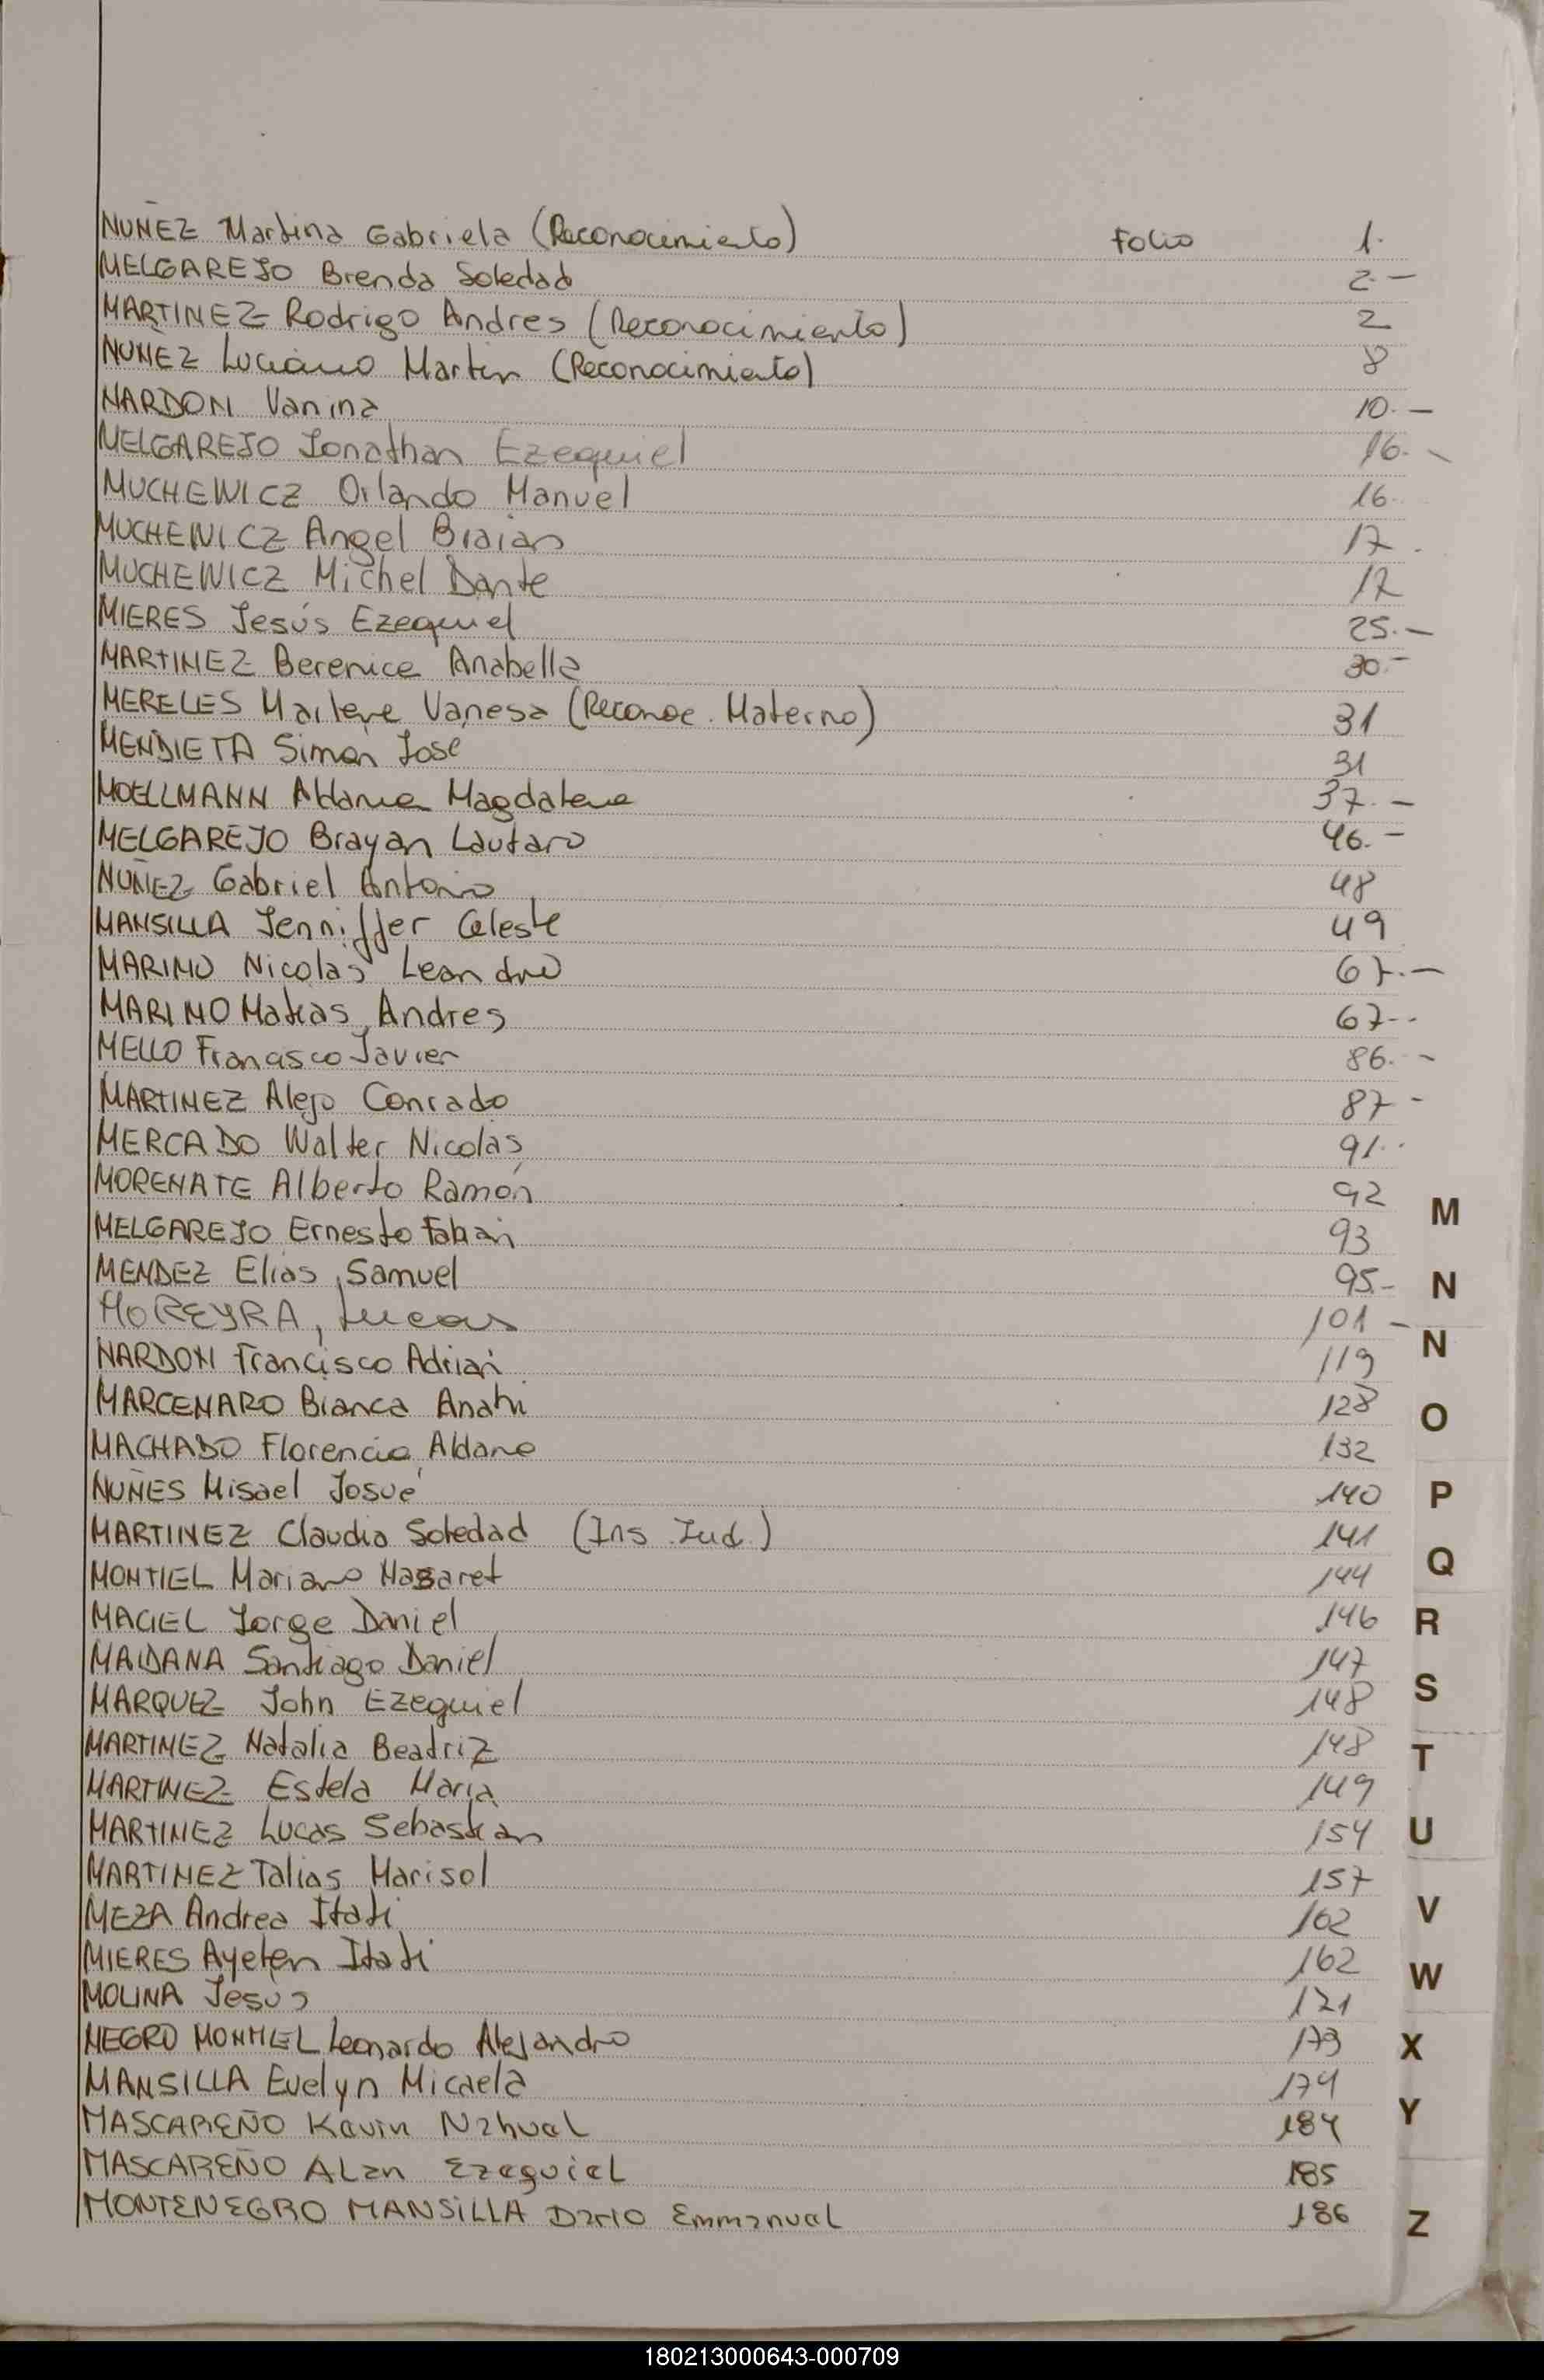 NUÑEZ Martina Gabriela (Reconocimiento) Folio 1.
MELGAREJO Brenda Soledad 2.-
MARTINEZ Rodrigo Andres (Reconocimiento) 2
NUÑEZ Luciano Martin (Reconocimiento) 8
NARDON Vanina 10.-
MELGAREJO Jonathan Ezequiel 16.-
MUCHEWICZ Orlando Manuel 16.
MUCHEWICZ Angel Braian 17.
MUCHEWICZ Michel Dante 17
MIERES Jesús Ezequiel 25.-
MARTINEZ Berenice Anabella 30.-
MERELES Marlene Vanesa (Reconoc. Materno) 31
MENDIETA Simón José 31
MOELLMANN Aldana Magdalena 37.-
MELGAREJO Brayan Lautaro 46.-
NUÑEZ Gabriel Antonio 48
MANSILLA Jenniffer Celeste 49
MARINO Nicolás Leandro 67.-
MARINO Matias Andres 67.-
MELLO Francisco Javier 86.-
MARTINEZ Alejo Conrado 87-
MERCADO Walter Nicolás 91.
MORENATE Alberto Ramón 92
M
MELGAREJO Ernesto Fabian 93
MENDEZ Elias Samuel 95.-
N
MOREYRA, Lucas 101-
N
NARDON Francisco Adrian 119
MARCENARO Bianca Anahi 128
O
MACHADO Florencia Aldana 132
NUÑES Misael Josué 140
P
MARTINEZ Claudia Soledad (Ins. Jud.) 141
Q
MONTIEL Mariano Nazaret 144
MACIEL Jorge Daniel 146
R
MAIDANA Santiago Daniel 147
S
MARQUEZ John Ezequiel 148
MARTINEZ Natalia Beatriz 148
T
MARTINEZ Estela María 149
MARTINEZ Lucas Sebastian 154
U
MARTINEZ Talias Marisol 157
MEZA Andrea Itati 162
V
MIERES Ayelen Itati 162
W
MOLINA Jesús 171
NEGRO MONTIEL Leonardo Alejandro 173
X
MANSILLA Evelyn Micaela 174
Y
MASCAREÑO Kevin Nahuel 184
MASCAREÑO Alan Ezequiel 185
MONTENEGRO MANSILLA Dario Emmanuel 186
Z
180213000643-000709